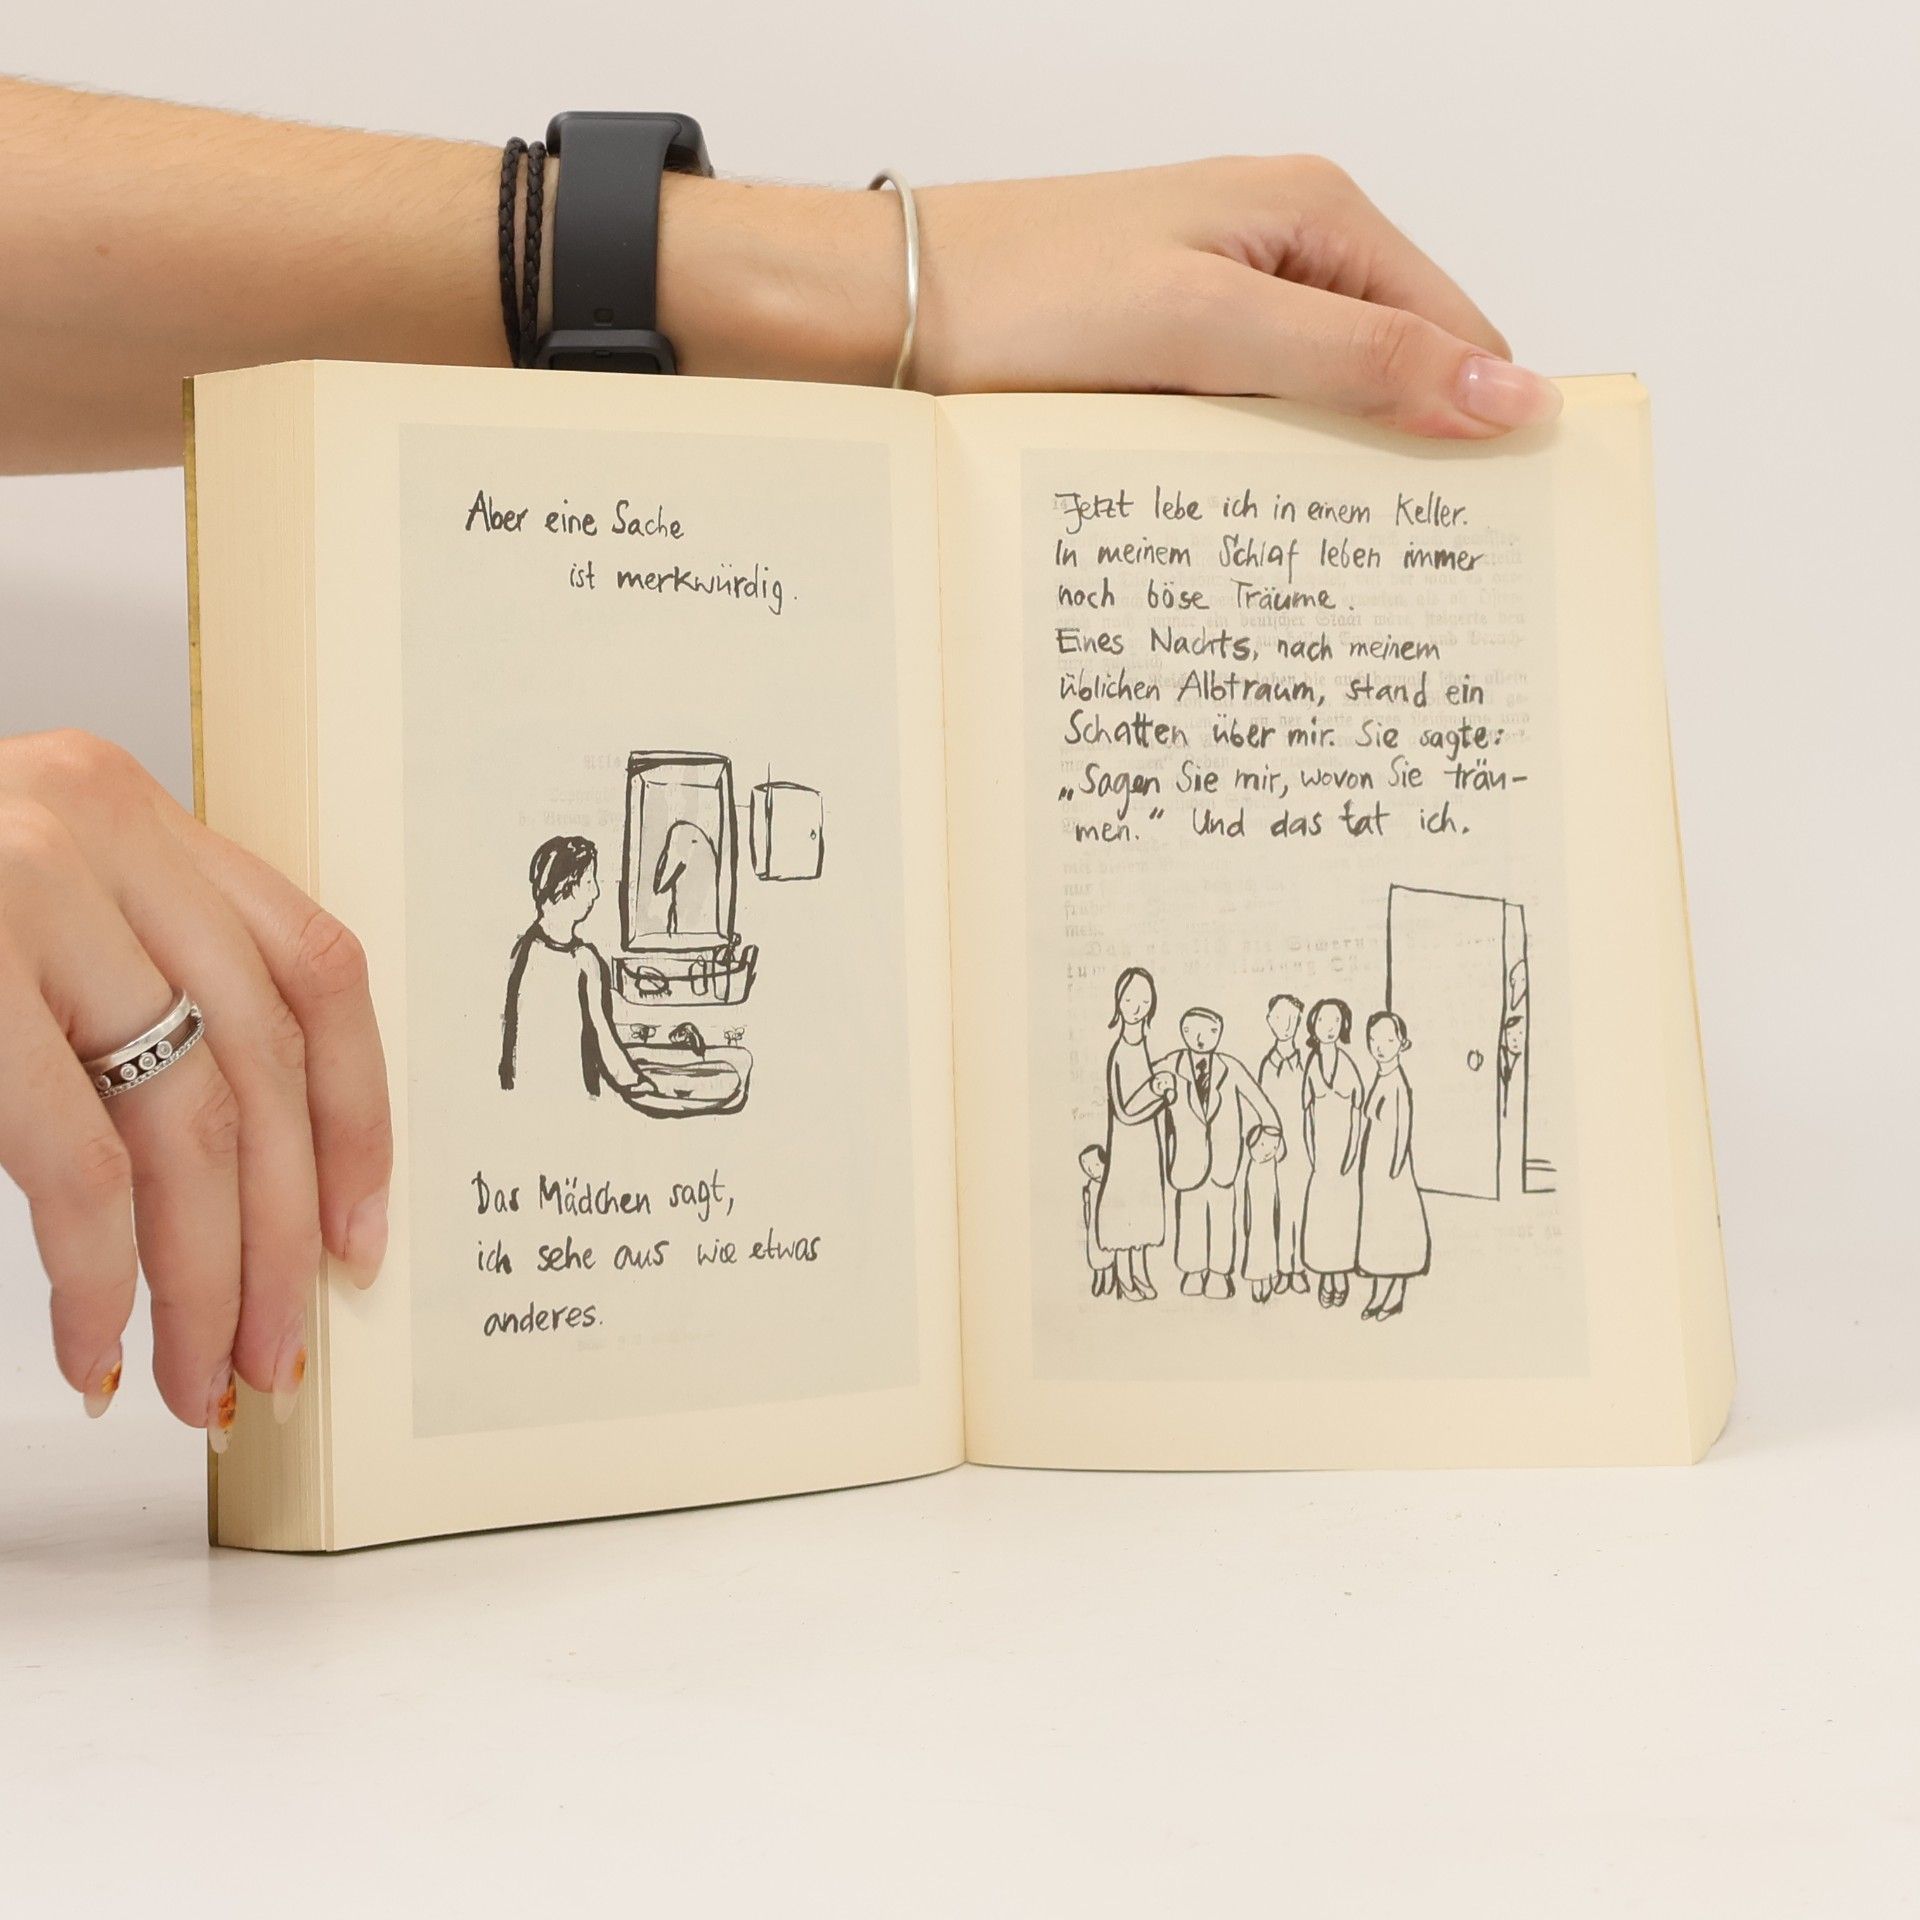 Aber eine Sache
ist merkwürdig.
Das Mädchen sagt,
ich sehe aus wie etwas
anderes.
Jetzt lebe ich in einem Keller.
In meinem Schlaf leben immer
noch böse Träume.
Eines Nachts, nach meinem
üblichen Albtraum, stand ein
Schatten über mir. Sie sagte:
„Sagen Sie mir, wovon Sie träu-
men.“ Und das tat ich.